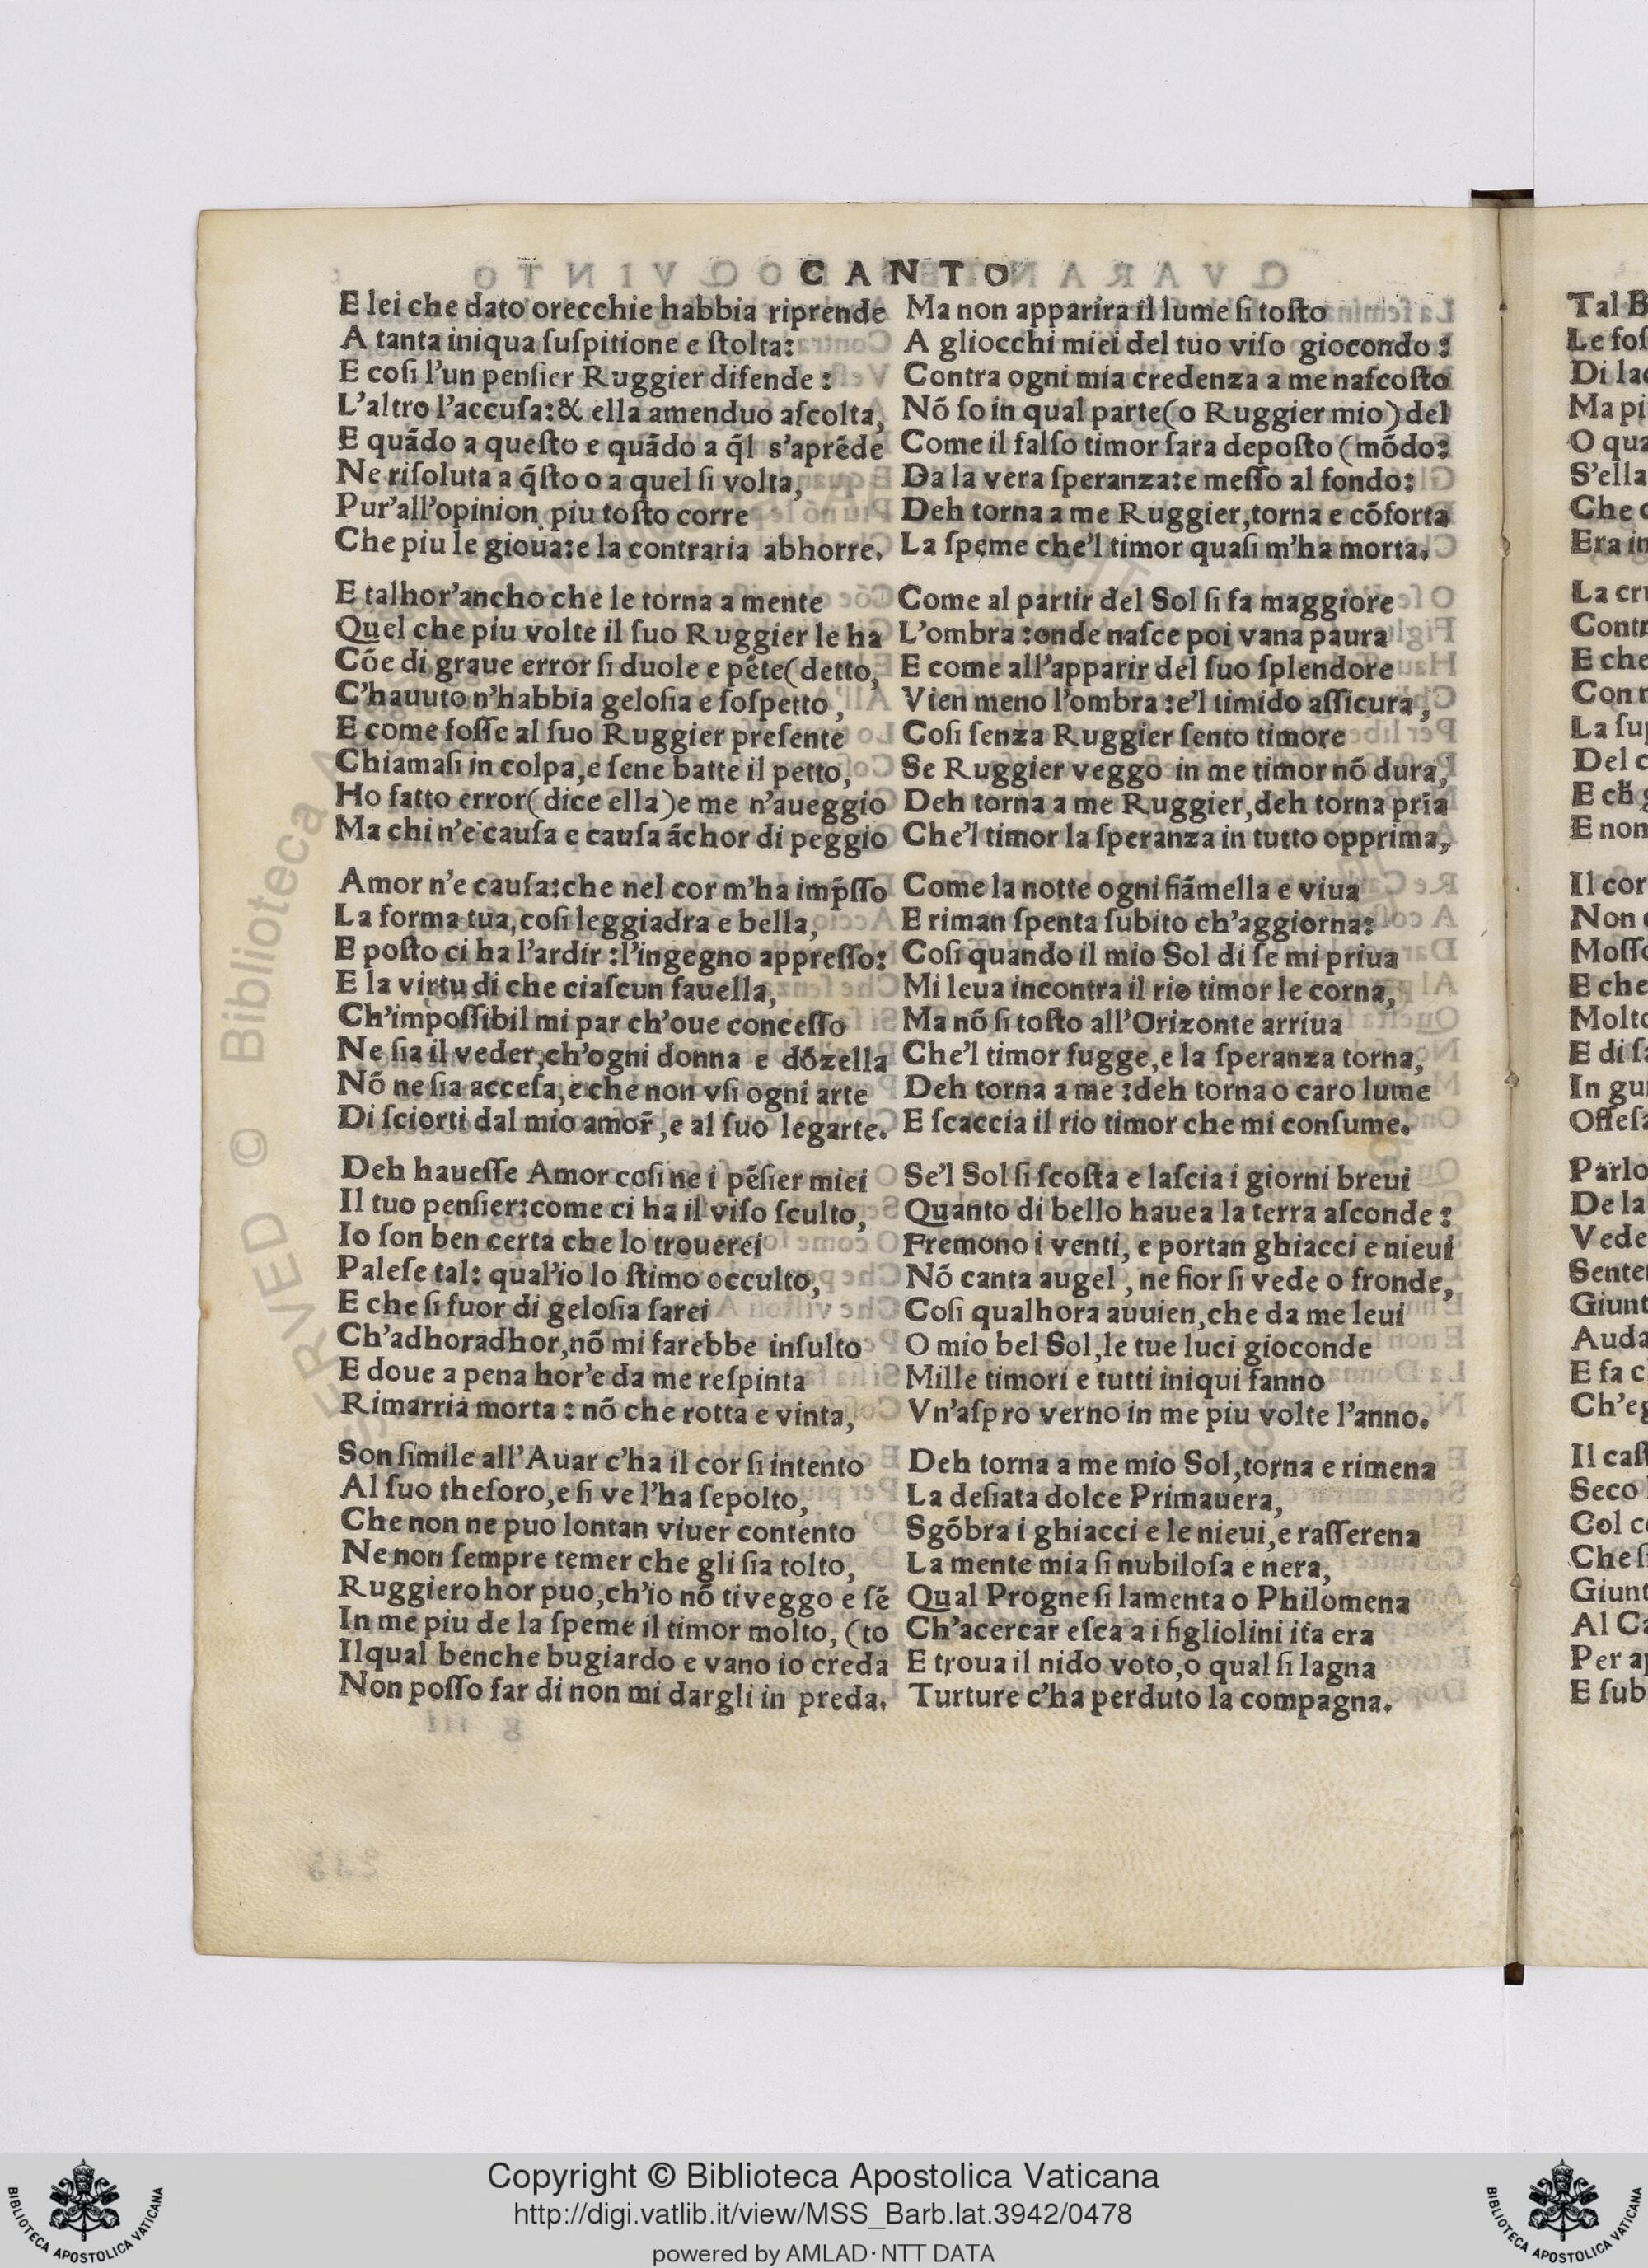 CANTO
E lei che dato orecchie habbia riprende
A tanta iniqua ſuſpitione e ſtolta:
E coſi l'un penſier Ruggier difende:
L'altro l'accuſa:& ella amenduo aſcolta,
E quãdo a queſto e quãdo a q̃l s'apréde
Ne riſoluta a q̃ſto o a quel ſi volta,
Pur'all'opinion piu toſto corre
Che piu le gioua:e la contraria abhorre.
E talhor'ancho che le torna a mente
Quel che piu volte il ſuo Ruggier le ha
Cõe di graue error ſi duole e péte(detto,
C'hauuto n'habbia geloſia e ſoſpetto,
E come foſſe al ſuo Ruggier preſente
Chiamaſi in colpa,e ſene batte il petto,
Ho fatto error(dice ella)e me n'aueggio
Ma chi n'e cauſa e cauſa ãchor di peggio
Amor n'e cauſa:che nel cor m'ha imp̃ſſo
La forma tua,coſi leggiadra e bella,
E poſto ci ha l'ardir:l'ingegno appreſſo:
E la virtu di che ciaſcun fauella,
Ch'impoſſibil mi par ch'oue conceſſo
Ne ſia il veder,ch'ogni donna e dõzella
Nõ ne ſia acceſa,e che non vſi ogni arte
Di ſciorti dal mio amor̃,e al ſuo legarte.
Deh haueſſe Amor coſi ne i péſier miei
Il tuo penſier:come ci ha il viſo ſculto,
Io ſon ben certa che lo trouerei
Paleſe tal: qual'io lo ſtimo occulto,
E che ſi fuor di geloſia ſarei
Ch'adhoradhor,nõ mi farebbe inſulto
E doue a pena hor'e da me reſpinta
Rimarria morta: nõ che rotta e vinta,
Son ſimile all'Auar c'ha il cor ſi intento
Al ſuo theſoro,e ſi ve l'ha ſepolto,
Che non ne puo lontan viuer contento
Ne non ſempre temer che gli ſia tolto,
Ruggiero hor puo,ch'io nõ ti veggo e ſé
In me piu de la ſpeme il timor molto, (to
Ilqual benche bugiardo e vano io creda
Non poſſo far di non mi dargli in preda.
Ma non apparira il lume ſi toſto
A gliocchi miei del tuo viſo giocondo:
Contra ogni mia credenza a me naſcoſto
Nõ ſo in qual parte(o Ruggier mio)del
Come il falſo timor ſara depoſto (mõdo:
Da la vera ſperanza:e meſſo al fondo:
Deh torna a me Ruggier,torna e cõforta
La ſpeme che'l timor quaſi m'ha morta.
Come al partir del Sol ſi fa maggiore
L'ombra:onde naſce poi vana paura
E come all'apparir del ſuo ſplendore
Vien meno l'ombra:e'l timido aſſicura,
Coſi ſenza Ruggier ſento timore
Se Ruggier veggo in me timor nõ dura,
Deh torna a me Ruggier,deh torna pria
Che'l timor la ſperanza in tutto opprima,
Come la notte ogni fiãmella e viua
E riman ſpenta ſubito ch'aggiorna:
Coſi quando il mio Sol di ſe mi priua
Mi leua incontra il rio timor le corna,
Ma nõ ſi toſto all'Orizonte arriua
Che'l timor fugge,e la ſperanza torna,
Deh torna a me:deh torna o caro lume
E ſcaccia il rio timor che mi conſume.
Se'l Sol ſi ſcoſta e laſcia i giorni breui
Quanto di bello hauea la terra aſconde:
Fremono i venti, e portan ghiacci e nieui
Nõ canta augel, ne fior ſi vede o fronde,
Coſi qualhora auuien,che da me leui
O mio bel Sol,le tue luci gioconde
Mille timori e tutti iniqui fanno
Vn'aſpro verno in me piu volte l'anno.
Deh torna a me mio Sol,torna e rimena
La deſiata dolce Primauera,
Sgõbra i ghiacci e le nieui,e raſſerena
La mente mia ſi nubiloſa e nera,
Qual Progne ſi lamenta o Philomena
Ch'acercar eſca a i figliolini ita era
E troua il nido voto,o qual ſi lagna
Turture c'ha perduto la compagna.
Tal B
Le foſ
Di la
Ma pi
O qua
S'ella
Che
Era in
La cru
Contr
E che
Con
La ſu
Del c
E ch
E non
Il cor
Non
Moſſ
E che
Molto
E di ſ
In gu
Offeſa
Parlo
De la
Vede
Sente
Giunt
Auda
E fa c
Ch'e
Il caſt
Seco
Col c
Che ſ
Giunt
Al Ca
Per a
E ſub
Copyright © Biblioteca Apostolica Vaticana
http://digi.vatlib.it/view/MSS_Barb.lat.3942/0478
powered by AMLAD·NTT DATA
BIBLIOTECA APOSTOLICA VATICANA
BIBLIOTECA APOSTOLICA VATICANA